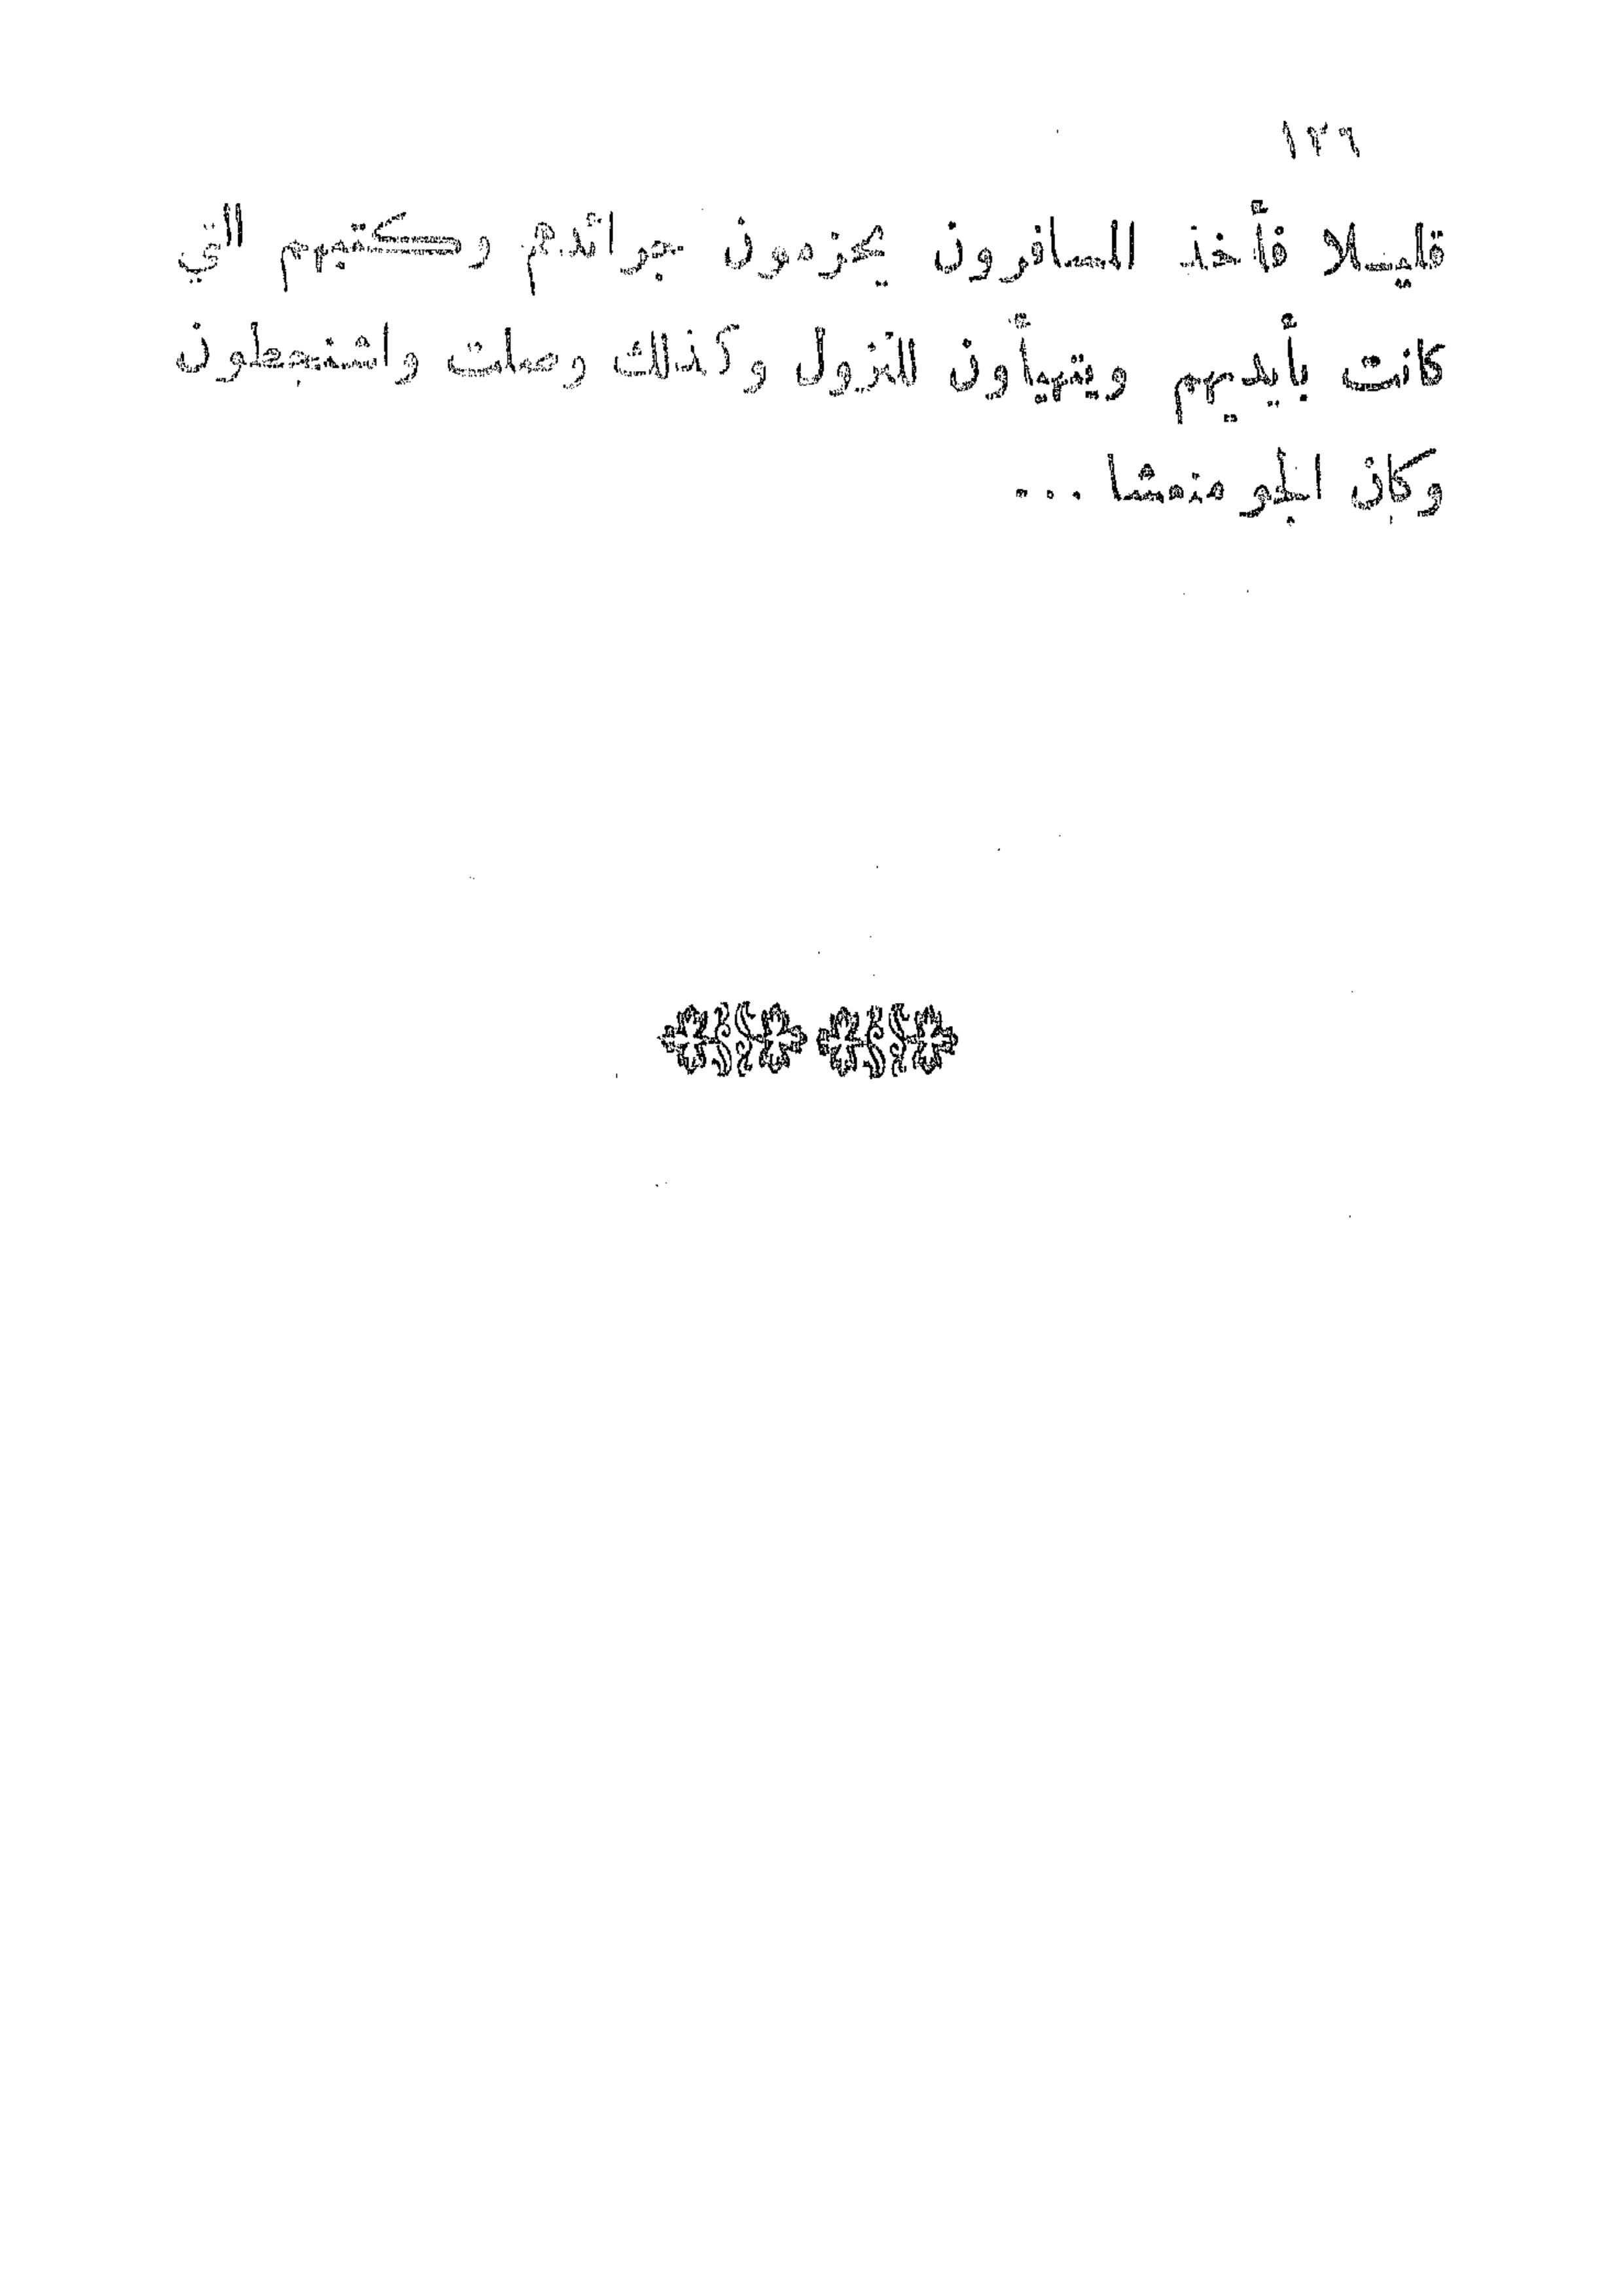 ١٢٦
قليلا فأخذ المسافرون يحزمون جرائدهم وكتبهم التي
كانت بأيديهم ويتهيأون للنزول وكذلك وصلت واشنجطون
وكان الجو منعشا ...